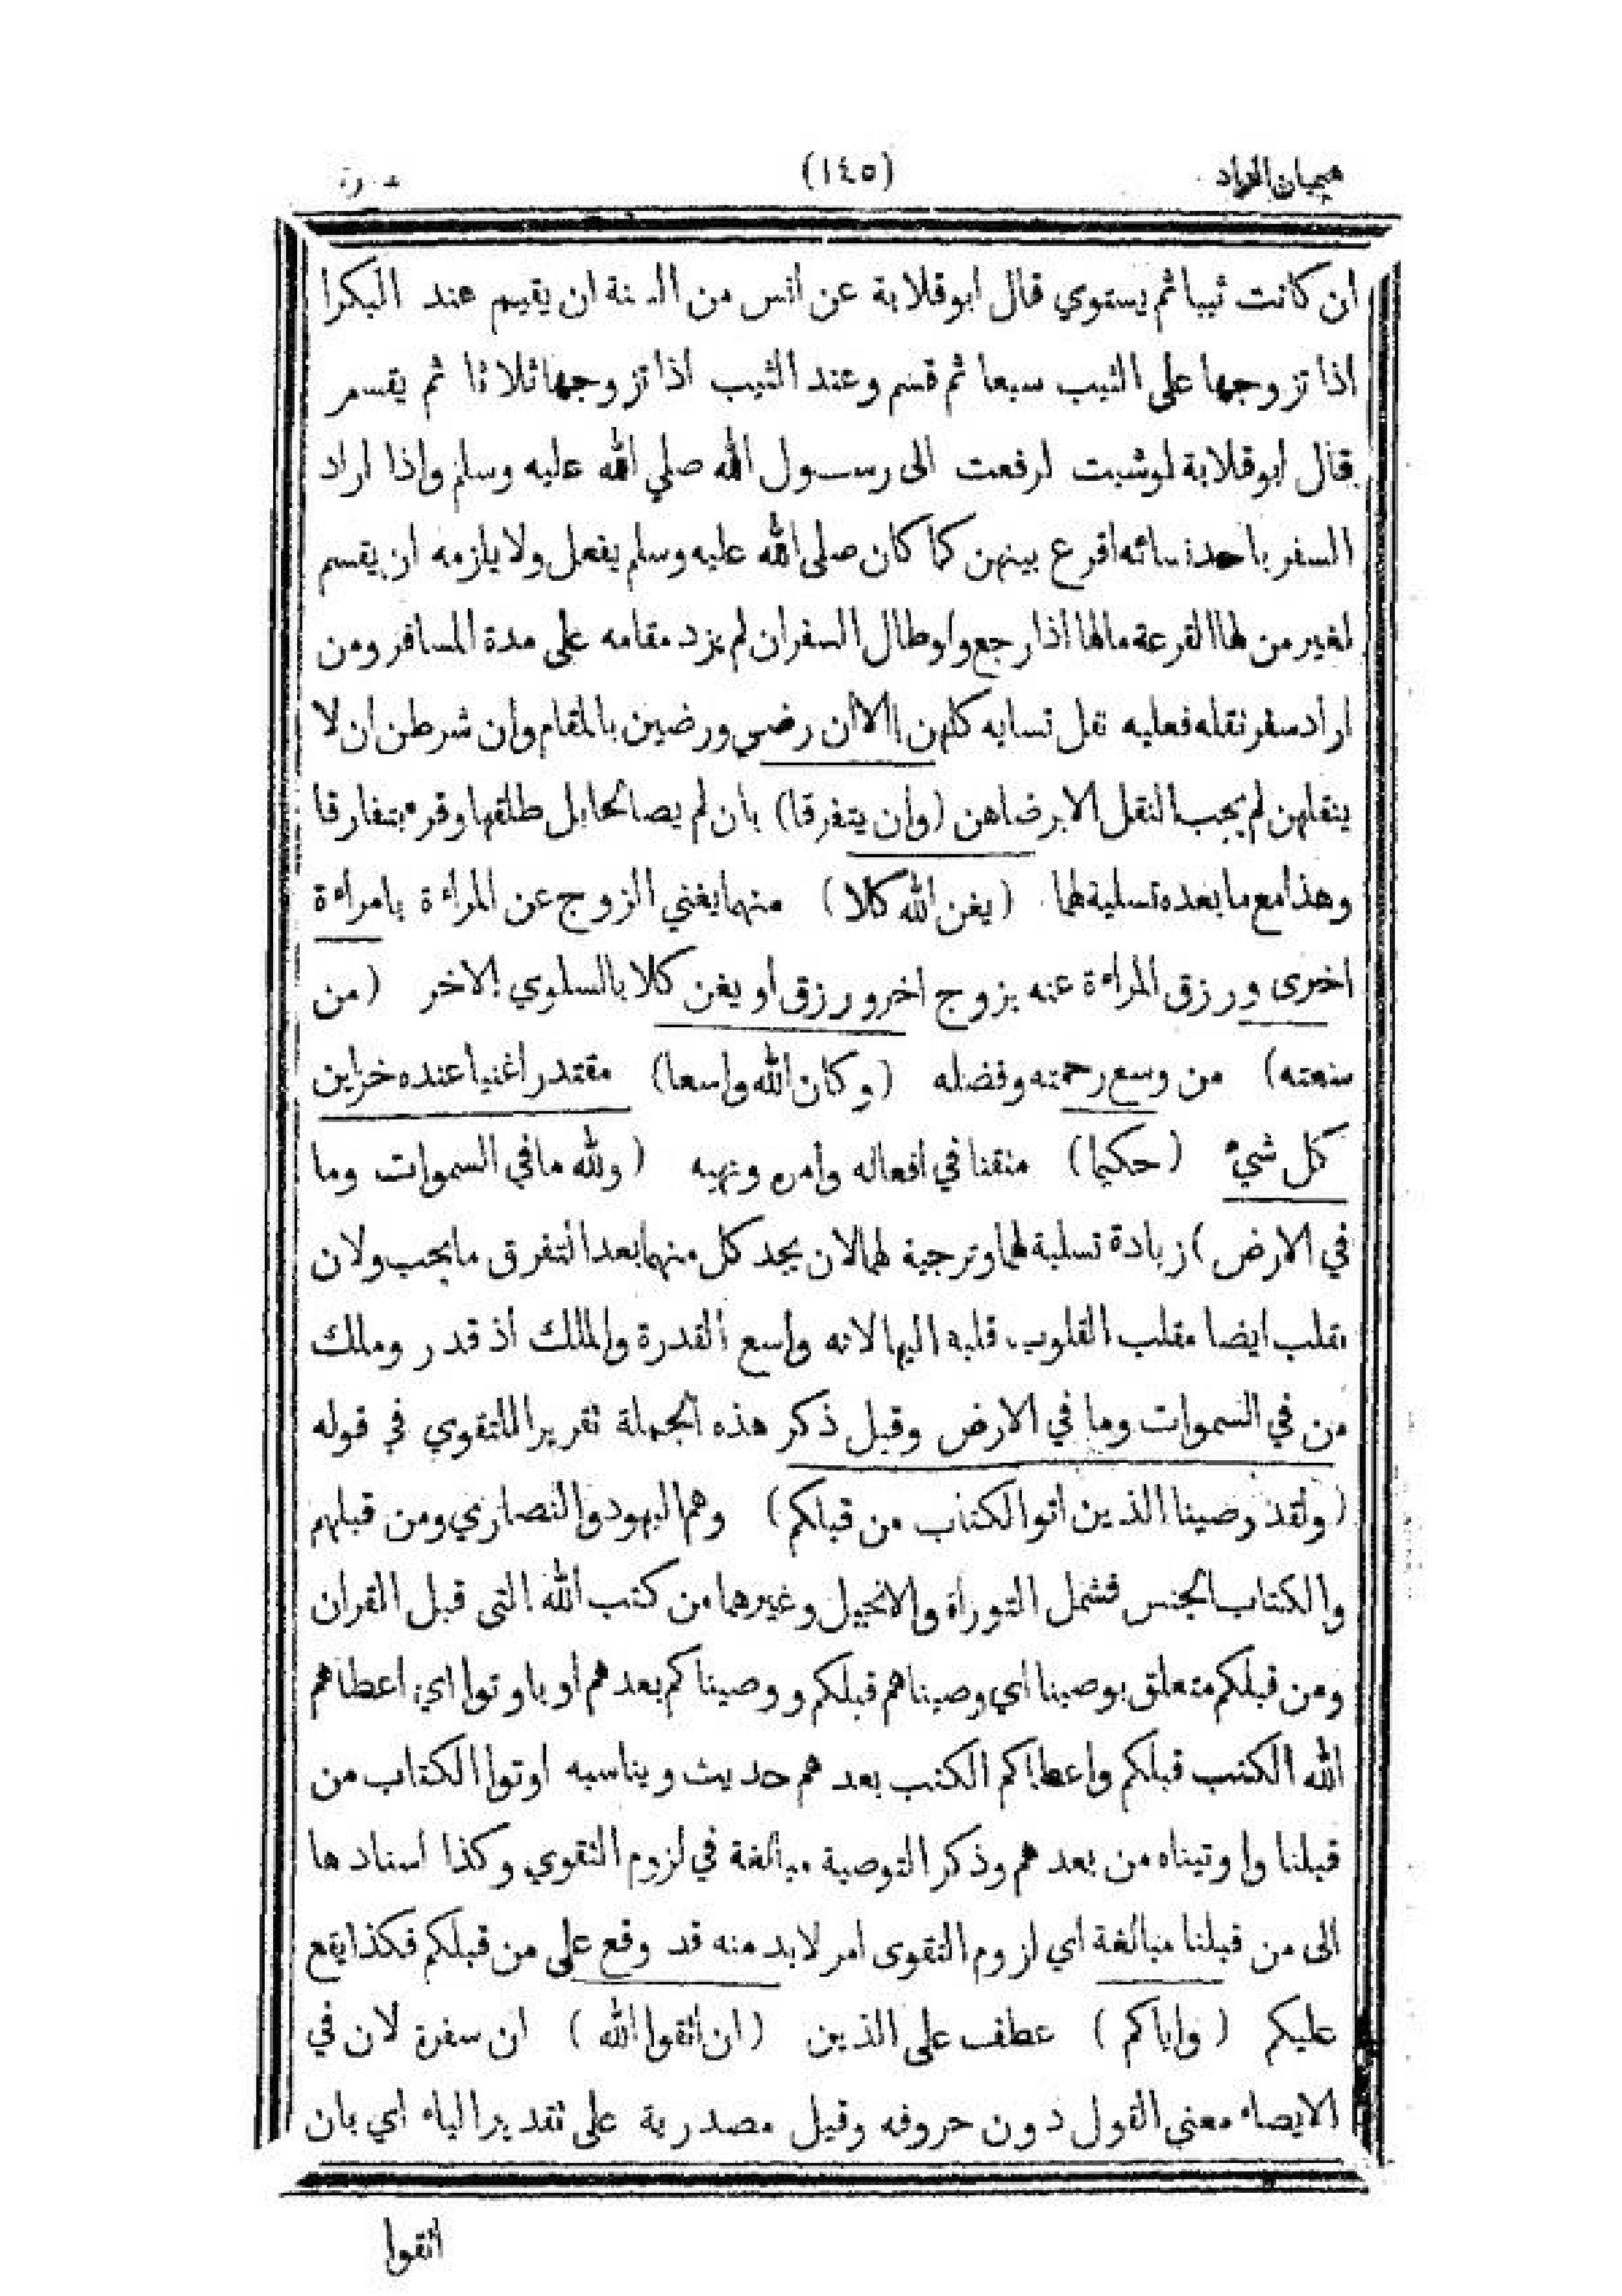 هميان الزاد (١٤٥)
ان كانت ثيبا ثم يستوي قال ابوقلابة عن انس من السنة ان يقيم عند البكرا
اذا تزوجها على الثيب سبعا ثم قسم وعند الثيب اذا تزوجها ثلاثا ثم يقسم
قال ابوقلابة لوشيت لرفعت الى رسول الله صلي الله عليه وسلم واذا اراد
السفر باحد نسائه اقرع بينهن كما كان صلى الله عليه وسلم يفعل ولا يلزمه ان يقسم
لغير من لها القرعة مالها اذا رجع ولوطال السفر ان لم يزد مقامه على مدة المسافر ومن
اراد سفر نقله فعليه نقل نسايه كلهن الا ان رضي ورضين بالمقام وان شرطن ان لا
ينقلهن لم يجب النقل الا برضاهن (وان يتفرقا) بان لم يصالحا بل طلقها وقرء يتفارقا
وهذا مع ما بعده تسلية لهما (يغن الله كلا) منهما يغني الزوج عن المراءة بامراءة
اخرى ورزق المراءة عنه بزوج اخرورزق او يغن كلا بالسلوي الاخر (من
سعته) من وسع رحمته وفضله (وكان الله واسعا) مقتدر اغنيا عنده خزاين
كل شيء (حكيما) متقنا في افعاله وامره ونهيه (ولله مافي السموات وما
في الارض) زيادة تسلية لهما وترجية لهما لان يجد كل منهما بعد التفرق ما يحب ولان
نقلب ايضا مقلب القلوب قلبه اليها لانه واسع القدرة والملك اذ قدر وملك
من في السموات وما في الارض وقيل ذكر هذه الجملة تقريرا للتقوي في قوله
(ولقد وصينا الذين اتوا الكتاب من قبلكم) وهم اليهود والنصاري ومن قبلهم
والكتاب الجنس فشمل التوراة والانجيل وغيرهما من كتب الله التى قبل القران
ومن قبلكم متعلق بوصينا اي وصيناهم قبلكم ووصيناكم بعدهم او باوتوا اي اعطاهم
الله الكتب قبلكم واعطاكم الكتب بعدهم حديث ويناسبه اوتوا الكتاب من
قبلنا واوتيناه من بعدهم وذكر التوصية مبالغة في لزوم التقوي وكذا اسنادها
الى من قبلنا مبالغة اي لزوم التقوى امر لا بد منه قد وقع على من قبلكم فكذا يقع
عليكم (واياكم) عطف على الذين (ان اتقوا الله) ان سفرة لان في
الايصاء معني القول دون حروفه وقيل مصدرية على تقدير الباء اي بان
اتقوا